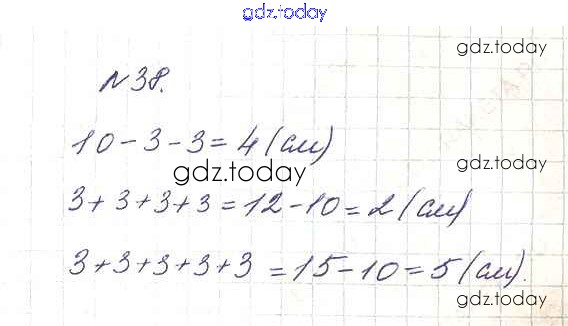 gdz.today
gdz.today
N38.
10-3-3=4(см)
gdz.today
gdz.today
3+3+3+3=12-10=2(см)
3+3+3+3+3=15-10=5(см).
gdz.today